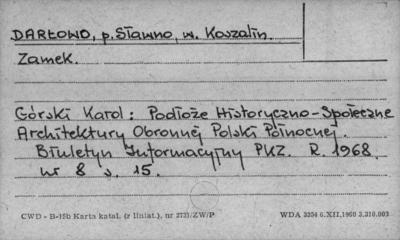 DARŁOWO, p. Sławno, w. Koszalin.
Zamek.
Górski Karol: Podłoże Historyczno-Społeczne
Architektury Obronnej Polski Północnej.
Biuletyn Informacyjny PKZ. R. 1968.
nr 8 s. 15.
CWD - B-15b Karta katal. (z liniat.), nr 2721/ZW/P
WDA 3354 6.XII.1960 3.310.003